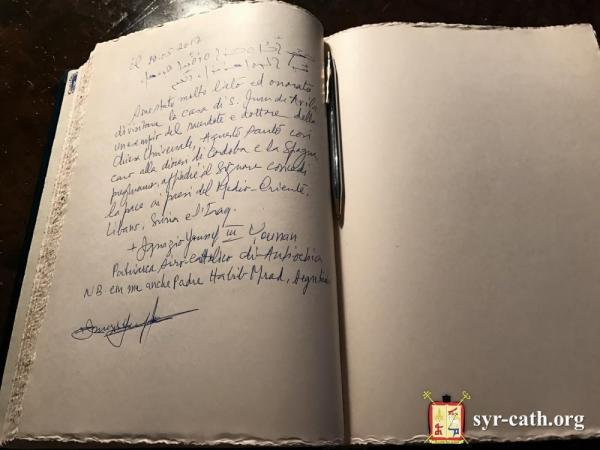 il 10.05.2017
stato molto lieto ed onorato
di visitare la casa di S. Juan de Avila
un esempio del sacerdote e dottore della
Chiesa Universale, Questo Santo così
caro alla diocesi di Cordoba e la Spagna
preghiamo, affinché il Signore conceda
la pace ai paesi del Medio-Oriente,
Libano, Siria e l'Iraq.
+ Ignazio Youssef III Younan
Patriarca Siro-cattolico di Antiochia
NB. con me anche Padre Habib Mrad,
syr-cath.org